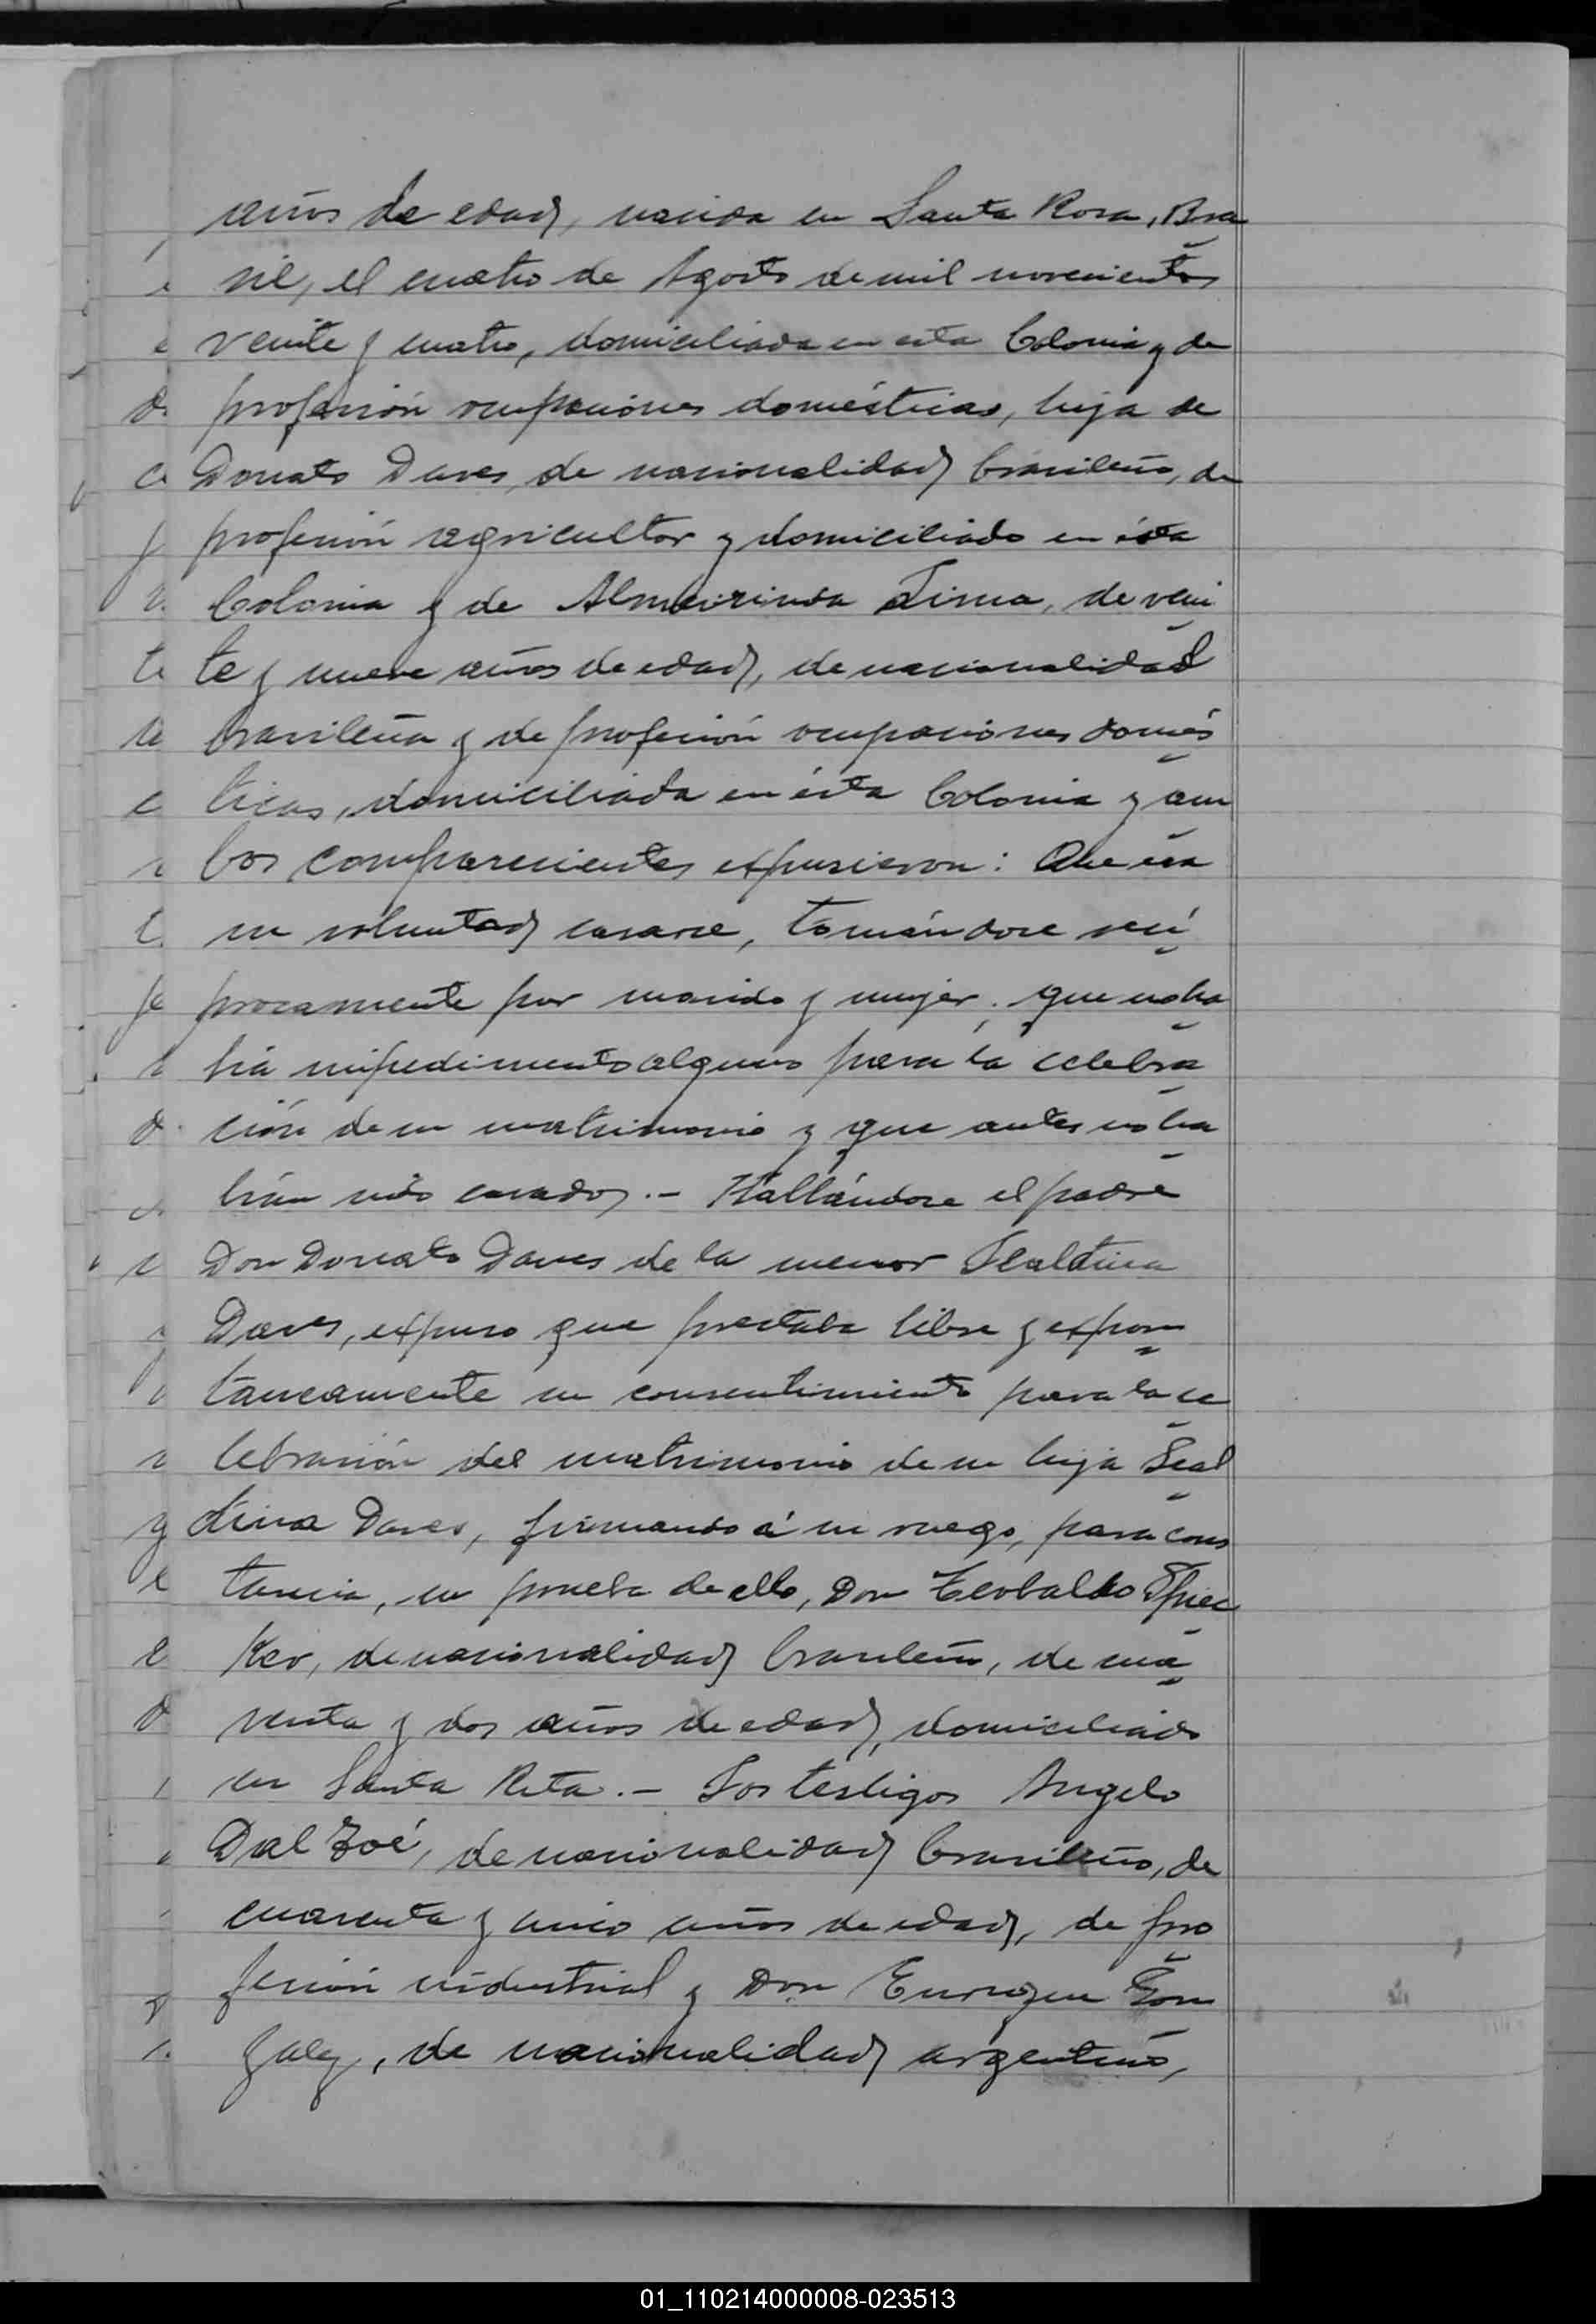 años de edad, nacida en Santa Rosa, Bra
sil, el cuatro de Agosto de mil novecientos
veinte y cuatro, domiciliada en esta Colonia y de
profesión ocupaciones domésticas, hija de
Donato Daves, de nacionalidad brasileño, de
profesión agricultor y domiciliado en ésta
Colonia y de Almeirinda Lima, de vein
te y nueve años de edad, de nacionalidad
brasileña y de profesión ocupaciones domés
ticas, domiciliada en ésta Colonia y am
bos comparecientes expusieron: Que era
su voluntad casarse, tomándose recí
procamente por marido y mujer; que no ha
bía impedimento alguno para la celebra
ción de su matrimonio y que antes no ha
bían sido casados.- Hallándose el padre
Don Donato Daves de la menor
Daves, expuso que prestaba libre y expon
taneamente su consentimiento para la ce
lebración del matrimonio de su hija
Daves, firmando á su ruego, para cons
tancia, en prueba de ello, Don Teobaldo Spiec
Ker, de nacionalidad brasileño, de cua
renta y dos años de edad, domiciliado
en Santa Rita.- Los testigos Angelo
Dal Zoé, de nacionalidad brasileño, de
cuarenta y cinco años de edad, de pro
fesión industrial y Don Gon
zalez, de nacionalidad argentino,
01_110214000008-023513